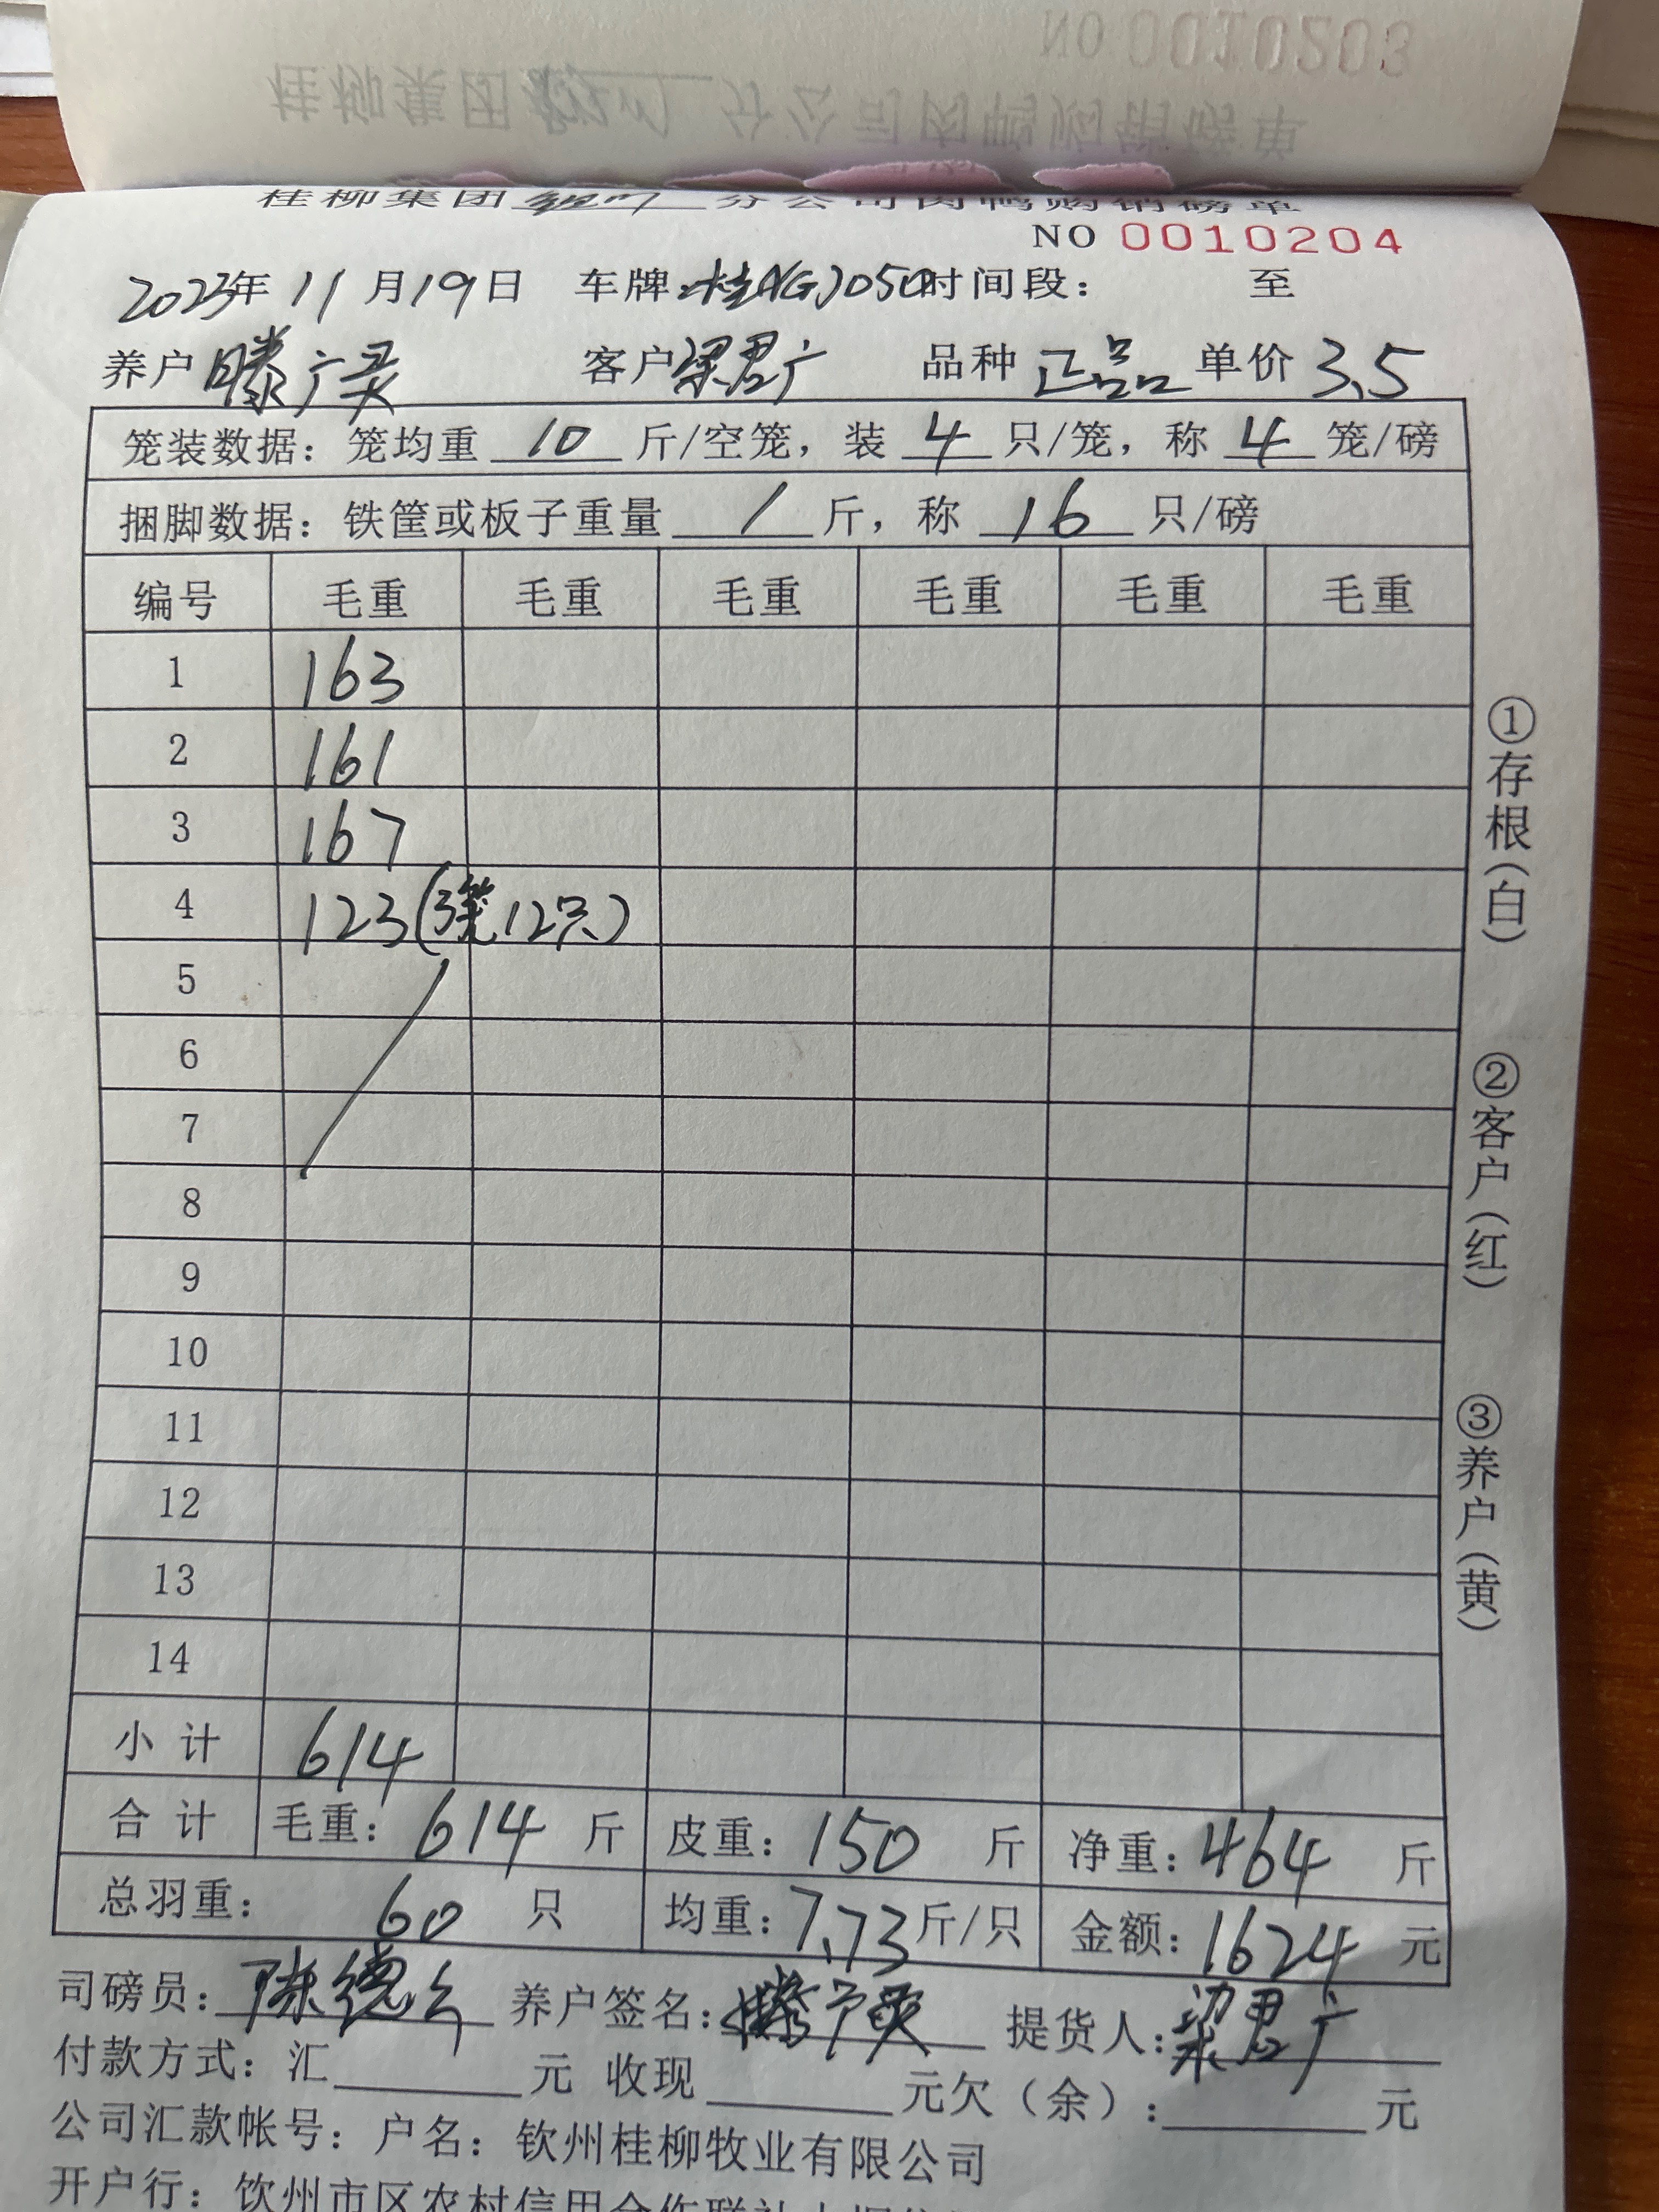 NO 0010203
桂柳集团 分公司肉鸭购销磅单
桂柳集团 分公司肉鸭购销磅单
NO 0010204
2023年 11月19日 车牌: 时间段: 至
养户 滕广 客户 梁君广 品种 正品 单价 3.5
笼装数据: 笼均重 10 斤/空笼, 装 4 只/笼, 称 4 笼/磅
捆脚数据: 铁筐或板子重量 / 斤, 称 16 只/磅
编号 毛重 毛重 毛重 毛重 毛重 毛重
1 163
2 161
3 167
4 123(3笼12只)
5
6
7
8
9
10
11
12
13
14
小计 614
合计 毛重: 614 斤 皮重: 150 斤 净重: 464 斤
总羽重: 60 只 均重: 7.73斤/只 金额: 1624 元
司磅员: 陈德 养户签名: 滕广 提货人: 梁君广
付款方式: 汇 元 收现 元欠(余): 元
公司汇款帐号: 户名: 钦州桂柳牧业有限公司
开户行: 钦州市区农村信用合作联社
①存根(白)
②客户(红)
③养户(黄)